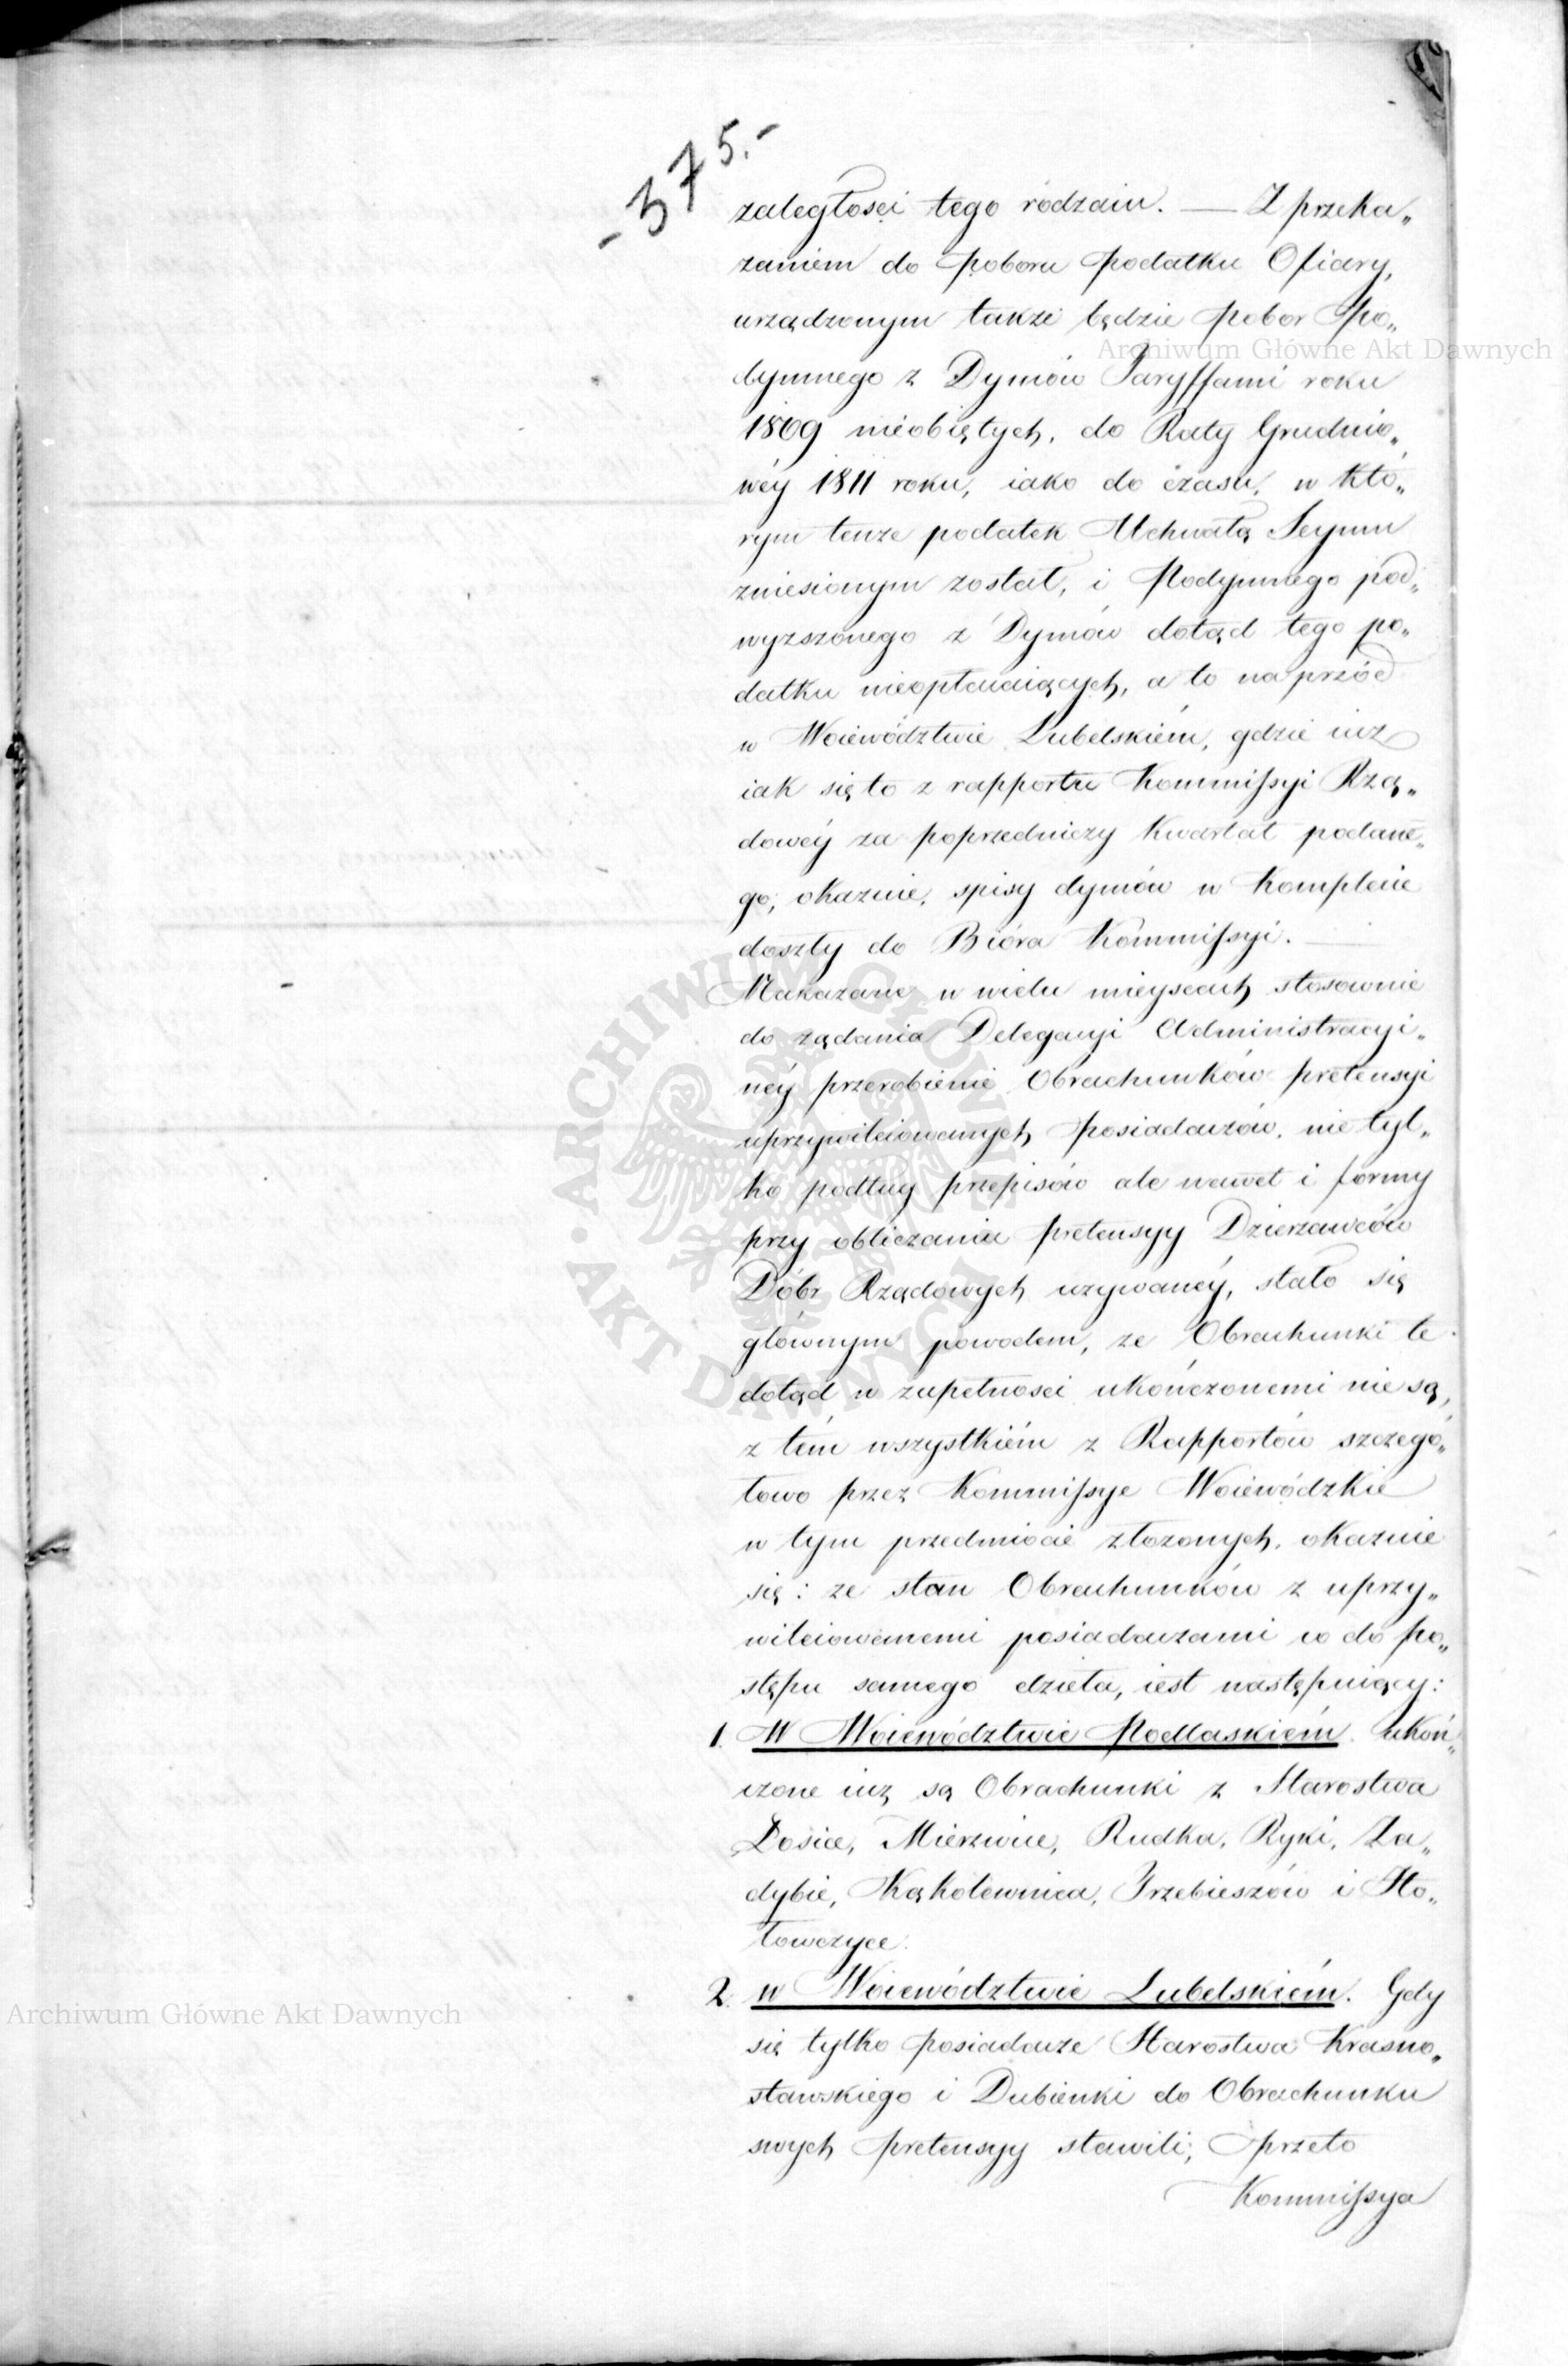 - 375.-
zaległości tego rodzaiu. — Z przeka„
zaniem do poboru podatku Ofiary,
urządzonym także będzie pobor Po„
dymnego z Dymów Taryffami roku
1809 nieobiętych, do Raty Grudnio„
wéy 1811 roku, iako do czasu, w któ„
rym tenże podatek Uchwałą Seymu
zniesionym został, i Podymnego pod„
wyższonego z Dymów dotąd tego po„
datku nieopłacaiących, a to naprzód
w Woiewództwie Lubelskiém, gdzie iuż
iak się to z rapportu Kommissyi Rzą„
dowéy za poprzedniczy Kwartał podane„
go, okazuie, spisy dymów w Komplecie
doszły do Bióra Kommissyi. —
Nakazane w wielu mieyscach stosownie
do żądania Delegacyi Administracyi„
néy przerobienie Obrachunków pretensyi
uprzywileiowanych posiadaczów, nie tyl„
ko podług przepisów ale nawet i formy
przy obliczaniu pretensyy Dzierżawców
Dóbr Rządowych używanéy, stało się
głównym powodem, że Obrachunki te
dotąd w zupełności ukończonemi nie są,
z tém wszystkiém z Rapportów szczegó„
łowo przez Kommissye Woiewódzkie
w tym przedmiocie złożonych, okazuie
się: że stan Obrachunków z uprzy„
wileiowanemi posiadaczami co do po„
stępu samego dzieła, iest następuiący:
1. W Woiewództwie Podlaskiém ukoń„
czone iuż są Obrachunki z Starostwa
Łosice, Mierzwice, Rudka, Ryki, Za„
dybie, Kąkolewnica, Trzebieszów i Sto„
łowczyce.
2. w Woiewództwie Lubelskiém. Gdy
się tylko posiadacze Starostwa Krasno„
stawskiego i Dubienki do Obrachunku
swych pretensyy stawili; przeto
Kommissya
Archiwum Główne Akt Dawnych
Archiwum Główne Akt Dawnych
ARCHIWUM GŁÓWNE AKT DAWNYCH